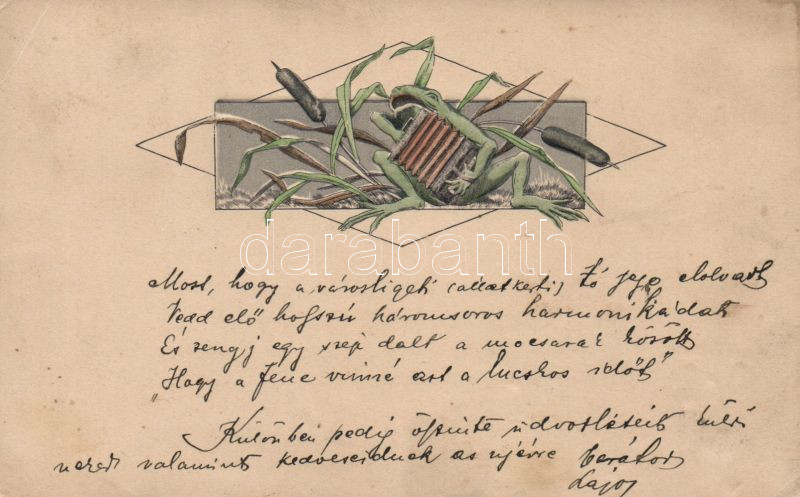 darabanth
Most, hogy a városligeti (állatkerti) tó jege elolvadt
Vedd elő hosszú háromsoros harmonikádat
És zengj egy szép dalt a mocsarak között
„Hogy a fene vinné ast a lucskos időt"
Különben pedig őszinte üdvözléseit küldi
neked valamint kedveseidnek az újévre barátod
Lajos